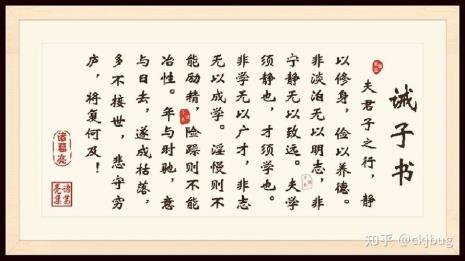 诫子书
夫君子之行，静
以修身，俭以养德。
非淡泊无以明志，非
宁静无以致远。夫学
须静也，才须学也。
非学无以广才，非志
无以成学。淫慢则不
能励精，险躁则不能
冶性。年与时驰，意
与日去，遂成枯落，
多不接世，悲守穷
庐，将复何及！
诸葛亮
知乎 @ckjbug